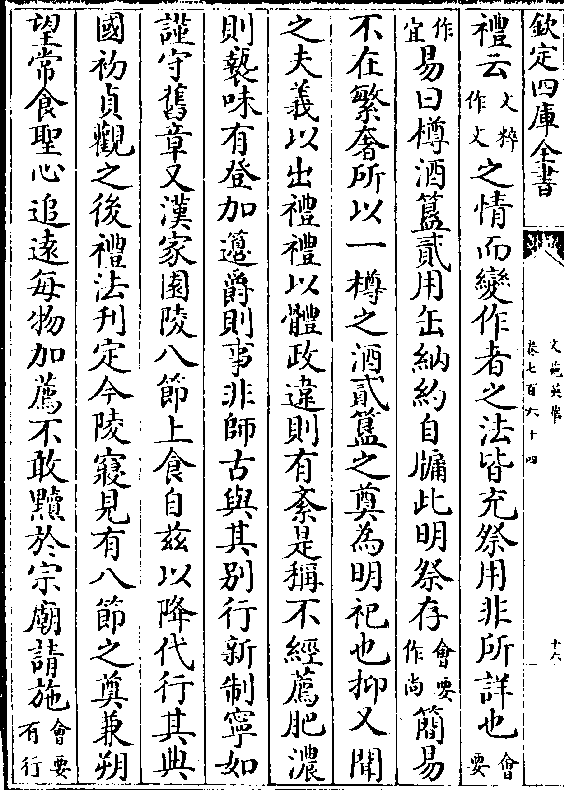 欽定四庫全書
文苑英華
卷七百六十四
十六
禮云文粹作文之情而變作者之法皆充祭用非所詳也會要
作宜易曰樽酒簋貳用缶納約自牖此明祭存會要作尚簡易
不在繁奢所以一樽之酒貳簋之奠為明祀也抑又聞
之夫義以出禮禮以體政違則有紊是稱不經薦肥濃
則褻味有登加籩爵則事非師古與其别行新制寧如
謹守舊章又漢家園陵八節上食自兹以降代行其典
國初貞觀之後禮法刊定今陵寢見有八節之奠兼朔
望常食聖心追遠每物加薦不敢黷於宗廟請施會要有行